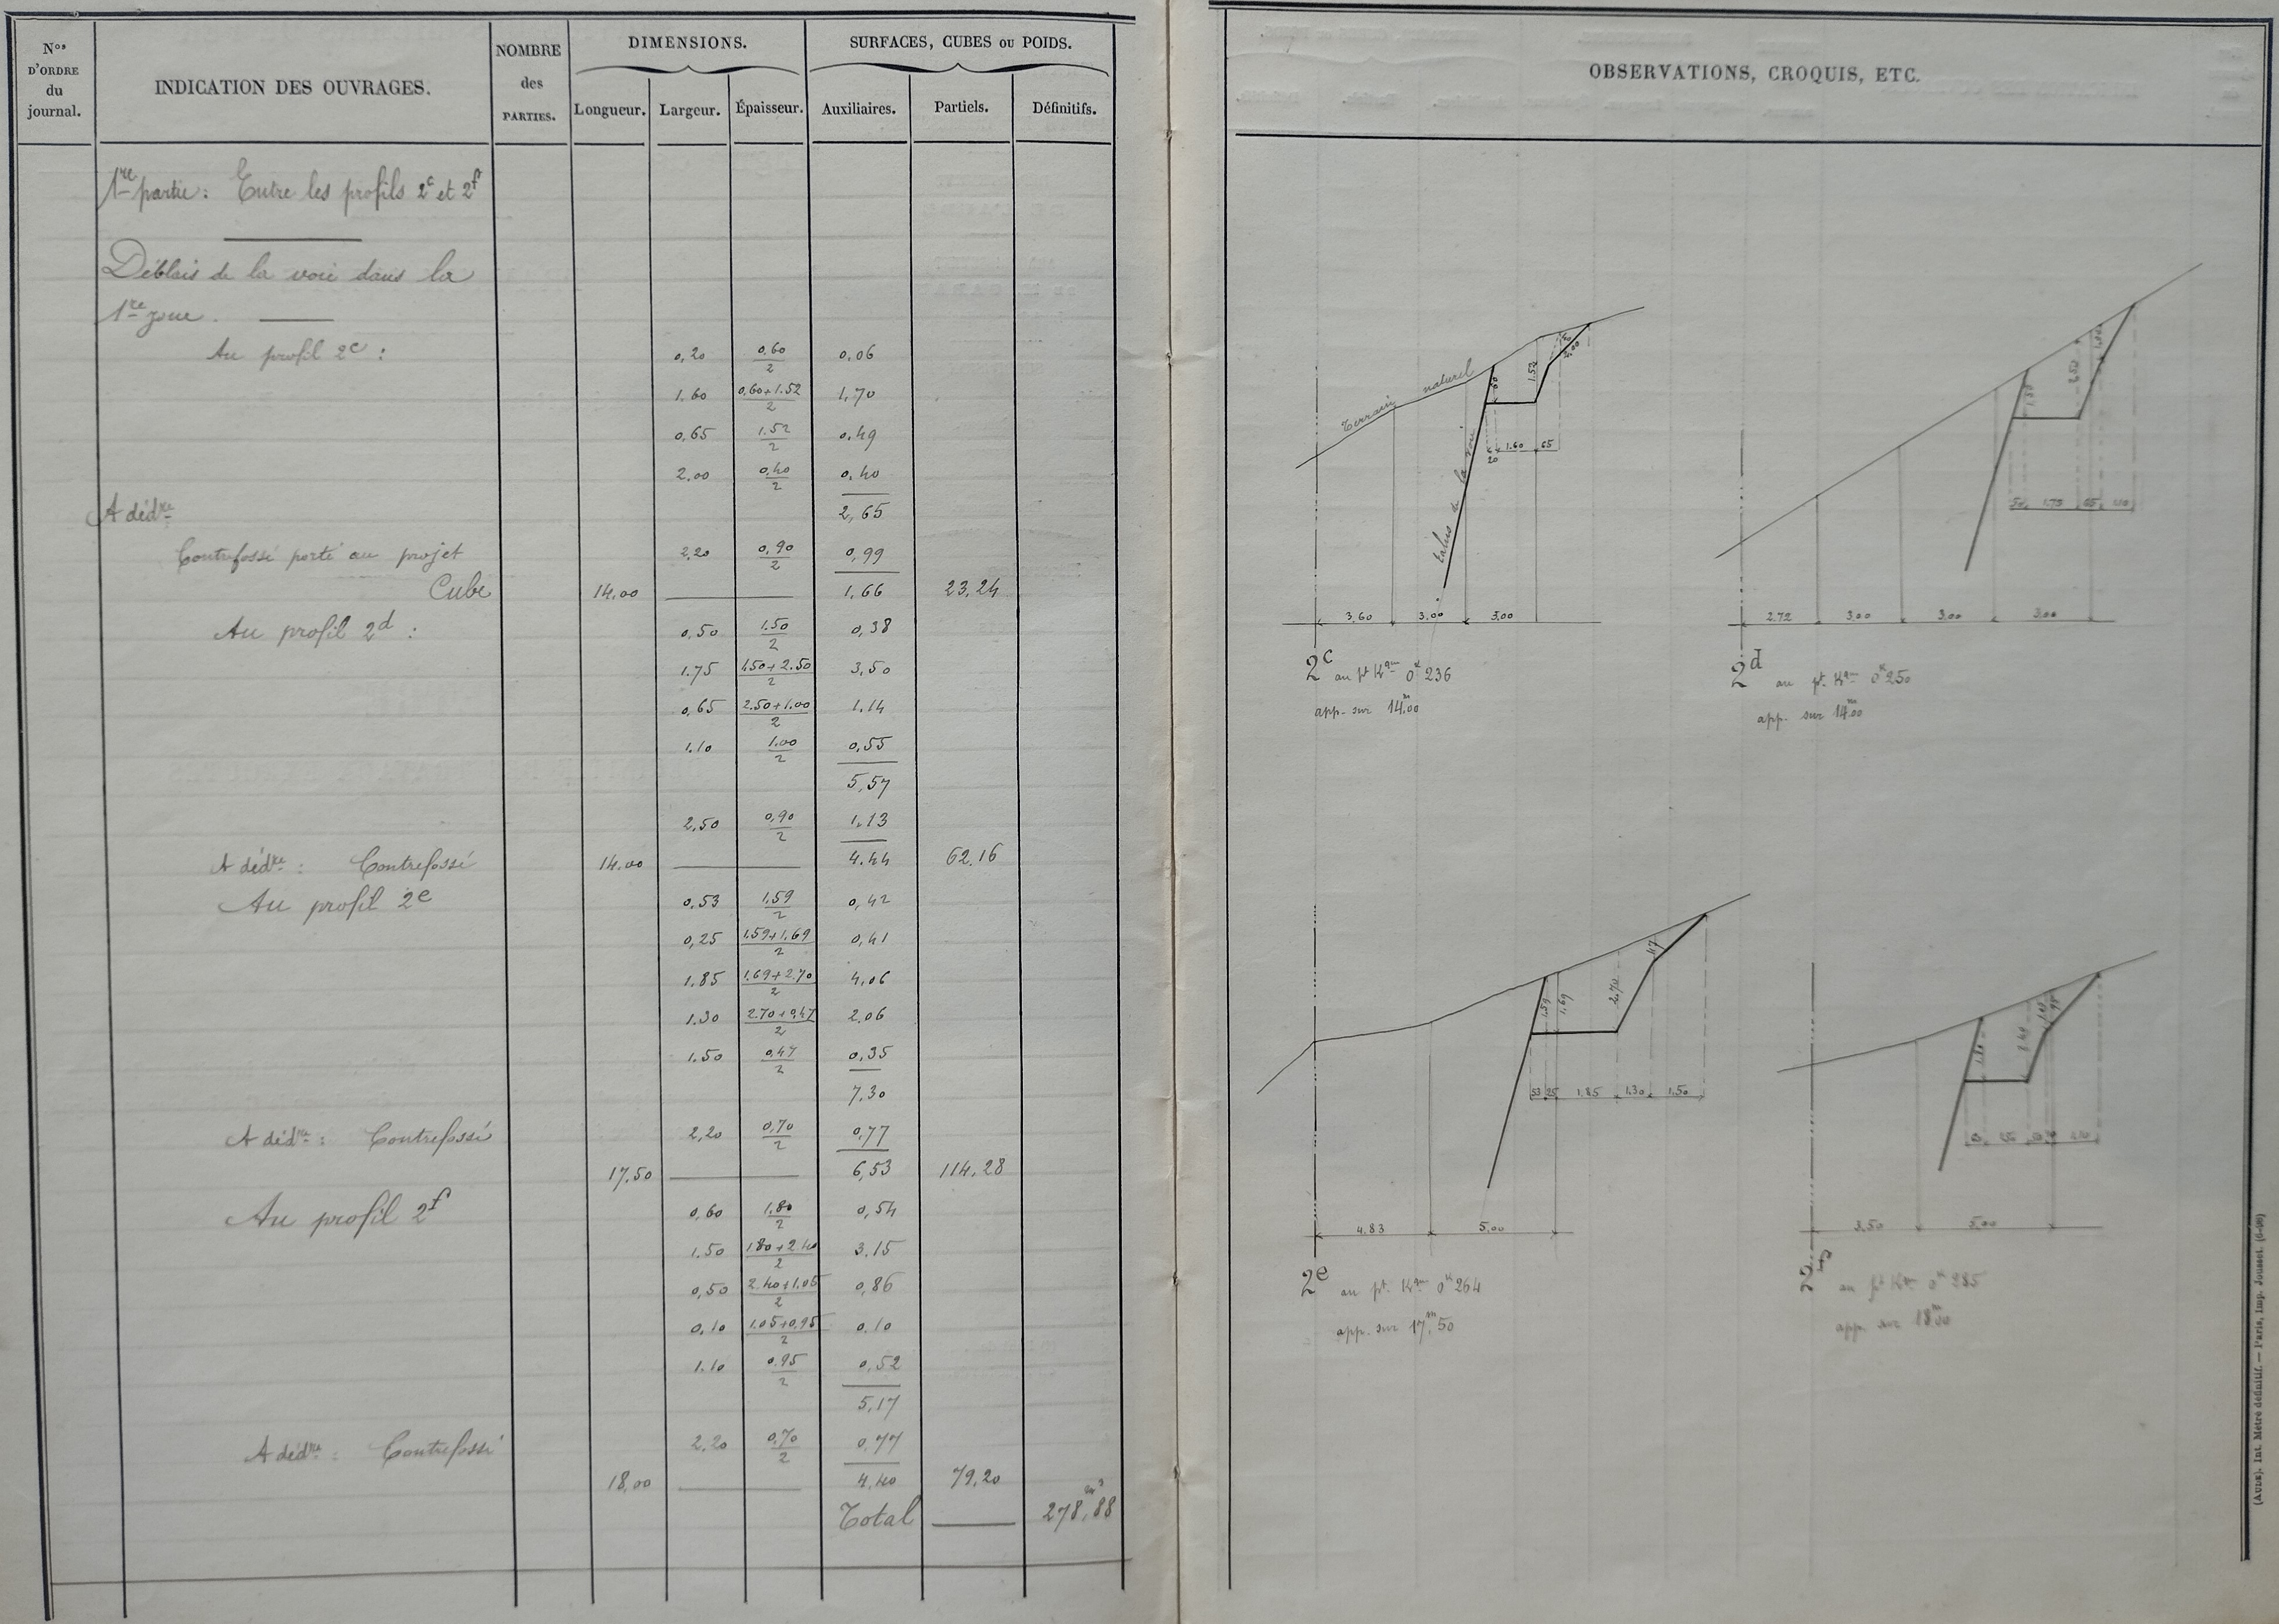 Nos D'ORDRE du journal.
INDICATION DES OUVRAGES.
NOMBRE des PARTIES.
DIMENSIONS.
Longueur. Largeur. Épaisseur.
SURFACES, CUBES ou POIDS.
Auxiliaires. Partiels. Définitifs.
1re partie : Entre les profils 2c et 2f
Déblais de la voie dans la
1re zone.
Au profil 2c : 0,20 0,60/2 0,06
1.60 0,60+1.52/2 1,70
0,65 1.52/2 0,49
2,00 0,40/2 0,40
A dédre 2,65
Contrefossé porté au projet 2,20 0,90/2 0,99
Cube 14,00 1,66 23,24
Au profil 2d : 0,50 1.50/2 0,38
1.75 1.50+2.50/2 3,50
0,65 2.50+1.00/2 1.14
1.10 1.00/2 0,55
5,57
2,50 0,90/2 1.13
A dédre : Contrefossé 14,00 4.44 62,16
Au profil 2e 0,53 1.59/2 0,42
0,25 1.59+1.69/2 0,41
1.85 1.69+2.70/2 4,06
1.30 2.70+0,47/2 2,06
1.50 0,47/2 0,35
7,30
A dédre : Contrefossé 2,20 0,70/2 0,77
17,50 6,53 114,28
Au profil 2f 0,60 1.80/2 0,54
1.50 1.80+2.40/2 3.15
0,50 2.40+1.05/2 0,86
0,10 1.05+0,95/2 0,10
1.10 0.95/2 0,52
5,17
A dédre : Contrefossé 2,20 0,70/2 0,77
18,00 4,40 79,20
Total 278,88 m3
OBSERVATIONS, CROQUIS, ETC.
Terrain naturel
talus de la voie
1.52
2.00
20 1.60 65
3.60 3.00 3.00
2c au pt Kque 0k236
app. sur 14m00
1.50
2.50
1.00
50 1.75 65 1.10
2.72 3.00 3.00 3.00
2d au pt. Kque 0k250
app. sur 14m00
1.59 1.69 2.70 47
53 25 1.85 1.30 1.50
4.83 5.00
2e au pt. Kque 0k264
app. sur 17m50
1.80
2.40
1.05
95
3.50 5.00
2f au pt Kque 0k285
app. sur 18m00
(AUDE). Int. Métré définitif. — Paris, Imp. Jousset. (6-98)